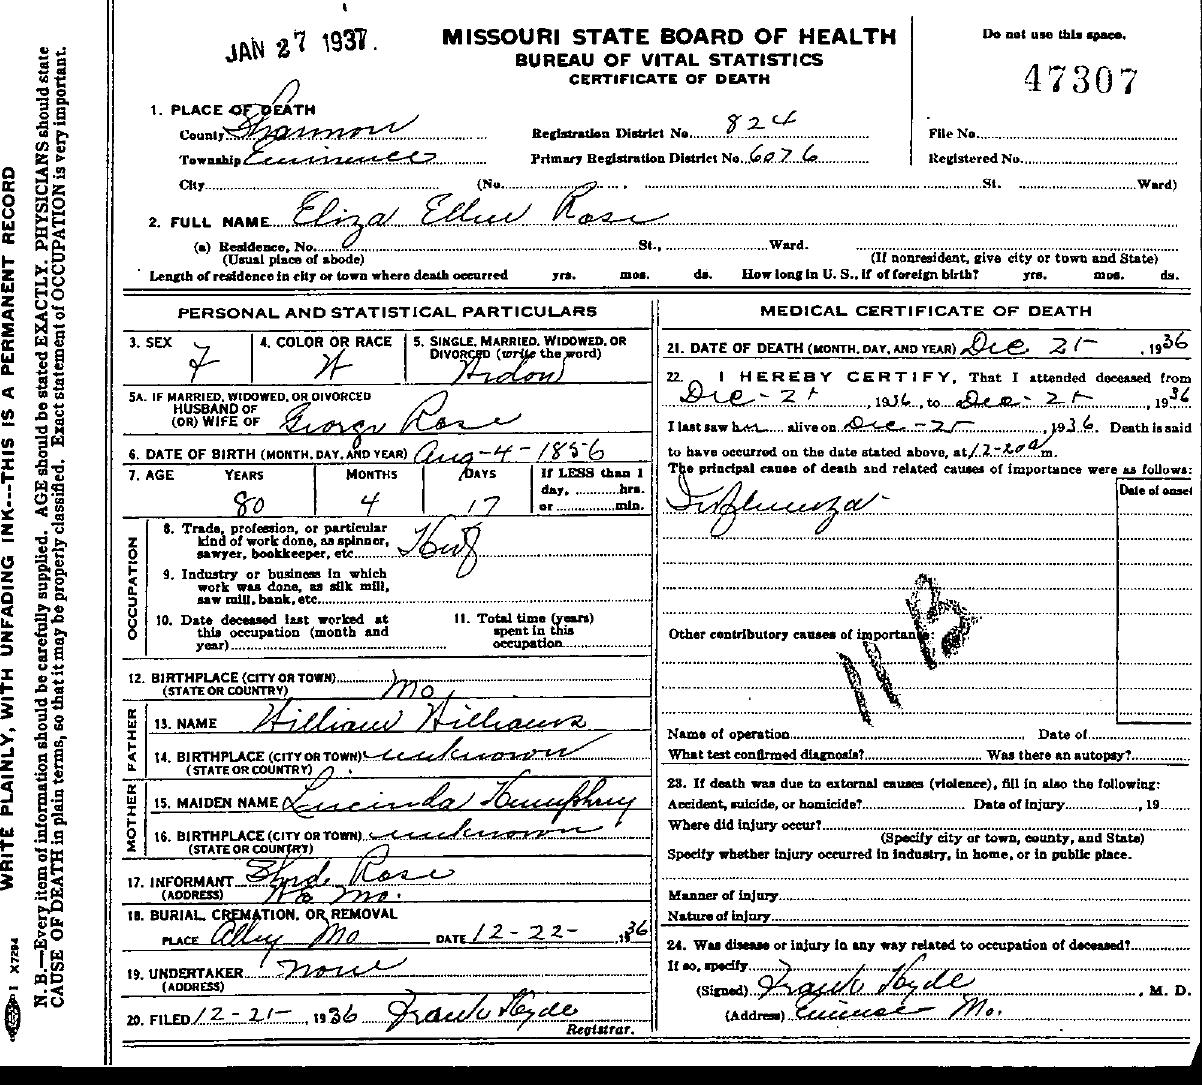 JAN 27 1937.
MISSOURI STATE BOARD OF HEALTH
BUREAU OF VITAL STATISTICS
CERTIFICATE OF DEATH
Do not use this space.
47307
1. PLACE OF DEATH
County Shannon Registration District No. 824 File No.
Township Eminence Primary Registration District No. 6076 Registered No.
City (No. St. Ward)
2. FULL NAME Eliza Ellen Rose
(a) Residence, No. St., Ward.
(Usual place of abode) (If nonresident, give city or town and State)
Length of residence in city or town where death occurred yrs. mos. ds. How long in U. S., if of foreign birth? yrs. mos. ds.
PERSONAL AND STATISTICAL PARTICULARS
3. SEX 4. COLOR OR RACE 5. SINGLE, MARRIED, WIDOWED, OR
DIVORCED (write the word)
F W Widow
5A. IF MARRIED, WIDOWED, OR DIVORCED
HUSBAND OF
(OR) WIFE OF George Rose
6. DATE OF BIRTH (MONTH, DAY, AND YEAR) Aug-4-1856
7. AGE YEARS MONTHS DAYS If LESS than 1
day, hrs.
or min.
80 4 17
OCCUPATION
8. Trade, profession, or particular
kind of work done, as spinner,
sawyer, bookkeeper, etc. Hwf
9. Industry or business in which
work was done, as silk mill,
saw mill, bank, etc.
10. Date deceased last worked at
this occupation (month and
year)
11. Total time (years)
spent in this
occupation
12. BIRTHPLACE (CITY OR TOWN)
(STATE OR COUNTRY) Mo
FATHER
13. NAME William Williams
14. BIRTHPLACE (CITY OR TOWN) unknown
(STATE OR COUNTRY)
MOTHER
15. MAIDEN NAME Lucinda Humphry
16. BIRTHPLACE (CITY OR TOWN) unknown
(STATE OR COUNTRY)
17. INFORMANT Rose
(ADDRESS) Mo.
18. BURIAL, CREMATION, OR REMOVAL
PLACE Alley Mo DATE 12-22- , 1936
19. UNDERTAKER none
(ADDRESS)
20. FILED 12-21-, 1936 Frank Hyde
Registrar.
MEDICAL CERTIFICATE OF DEATH
21. DATE OF DEATH (MONTH, DAY, AND YEAR) Dec 21- , 1936
22. I HEREBY CERTIFY, That I attended deceased from
Dec-21 , 1936, to Dec-21 , 1936
I last saw her alive on Dec-21 , 1936. Death is said
to have occurred on the date stated above, at 12-20am.
The principal cause of death and related causes of importance were as follows:
Date of onset
Influenza
Other contributory causes of importance:
11 B
Name of operation Date of
What test confirmed diagnosis? Was there an autopsy?
23. If death was due to external causes (violence), fill in also the following:
Accident, suicide, or homicide? Date of injury , 19
Where did injury occur?
(Specify city or town, county, and State)
Specify whether injury occurred in industry, in home, or in public place.
Manner of injury
Nature of injury
24. Was disease or injury in any way related to occupation of deceased?
If so, specify
(Signed) Frank Hyde , M. D.
(Address) Mo.
WRITE PLAINLY, WITH UNFADING INK---THIS IS A PERMANENT RECORD
N. B.—Every item of information should be carefully supplied. AGE should be stated EXACTLY. PHYSICIANS should state
CAUSE OF DEATH in plain terms, so that it may be properly classified. Exact statement of OCCUPATION is very important.
1 X7294